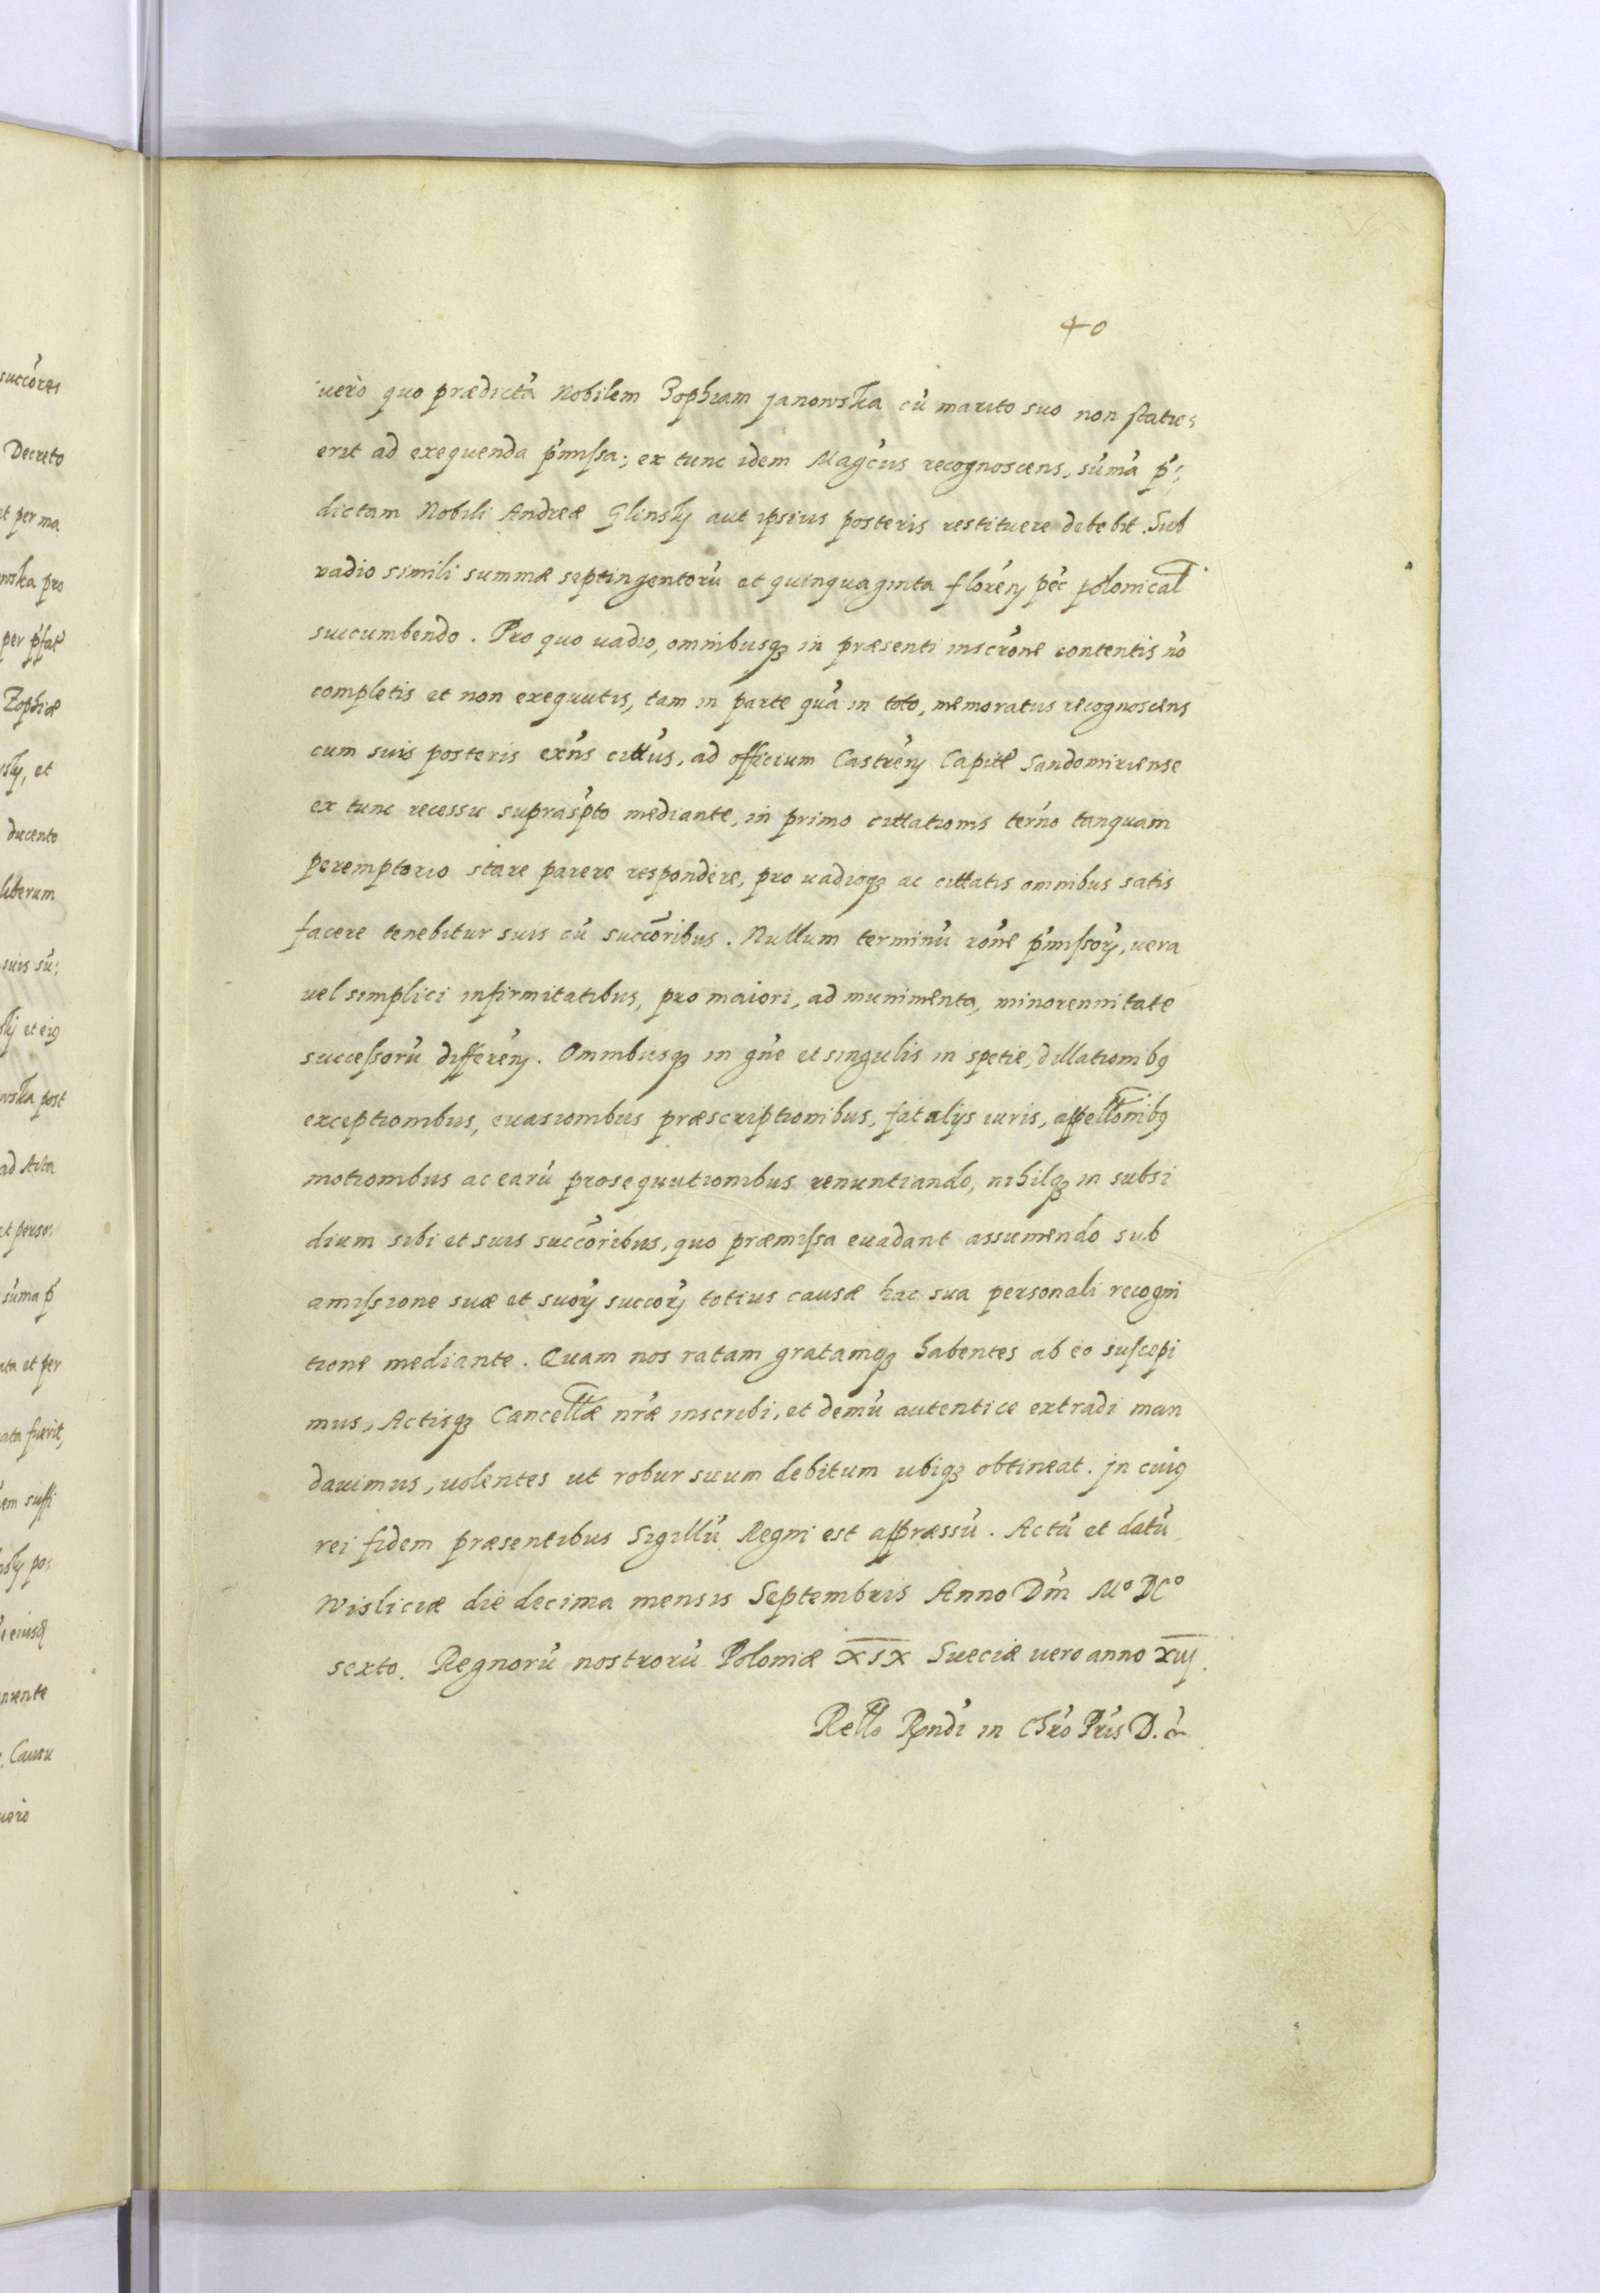 40
vero quo prædictã Nobilem Zophiam Janowska cũ marito suo non statu:
erit ad exequenda p̃missa; ex tunc idem Mag̃cus recognoscens, sum̃a p̃:
dictam Nobili Andreæ Glinsky aut ipsius posteris restituere debebit. Sub
vadio simili summæ septingentorũ et quinquaginta floreñ pec̃ polonical̃
succumbendo. Pro quo vadio, omnibusqꝫ in præsenti inscr̃one contentis nõ
completis et non exequutis, tam in parte quã in toto, memoratus recognoscens
cum suis posteris exñs citt̃us, ad officium Castreñ Capitł Sandomiriense
ex tunc recessu supras̃pto mediante, in primo cittationis ter̃no tanquam
peremptorio stare parere respondere, pro vadioqꝫ ac cittatis omnibus satis
facere tenebitur suis cũ succ̃oribus. Nullum terminũ rõne p̃missorꝝ, vera
vel simplici infirmitatibus, pro maiori, ad munimenta, minorennitate
successorũ differeñ. Omnibusqꝫ in gñe et singulis in spetie, dillationibꝰ
exceptionibus, evasionibus præscriptionibus, fatalijs iuris, appell̃onibꝰ
motionibus ac earũ prosequutionibus renuntiando, nihilqꝫ in subsi
dium sibi et suis succ̃oribus, quo præmissa evadant assumendo sub
amissione suæ et suorꝝ succorꝝ totius causæ hac sua personali recogni
tione mediante. Quam nos ratam gratamqꝫ habentes ab eo suscepi
mus, Actisqꝫ Cancell̃æ nr̃æ inscribi, et demũ autentice extradi man
davimus, volentes ut robur suum debitum ubiqꝫ obtineat. Jn cuiꝰ
rei fidem præsentibus Sigillũ Regni est appræssũ. Actũ et datũ
Wisliciæ die decima mensis Septembris Anno Dñi Mº DCº
sexto. Regnorũ nostrorũ Poloniæ XIX Sueciæ vero anno XIIJ.
Rell̃o Rñdi in Chr̃o Pr̃is D. &
succ̃ores
Decreto
per ma
wska pro
per p̃fat̃
Zophiæ
sky, et
ducento
liberum
suis su:
et eiꝰ
wska post
ad Acta
et perso:
sum̃a p̃
et per
fuerit,
em suffi
po:
Causu
vero